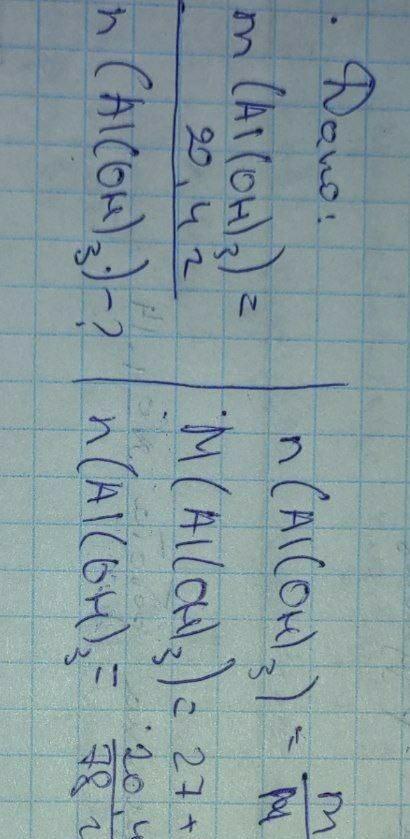 Дано:
m(Al(OH)3) =
20,4 г
n(Al(OH)3) - ?
n(Al(OH)3) = m/M
M(Al(OH)3) = 27 +
n(Al(OH)3 = 20,4/78 г